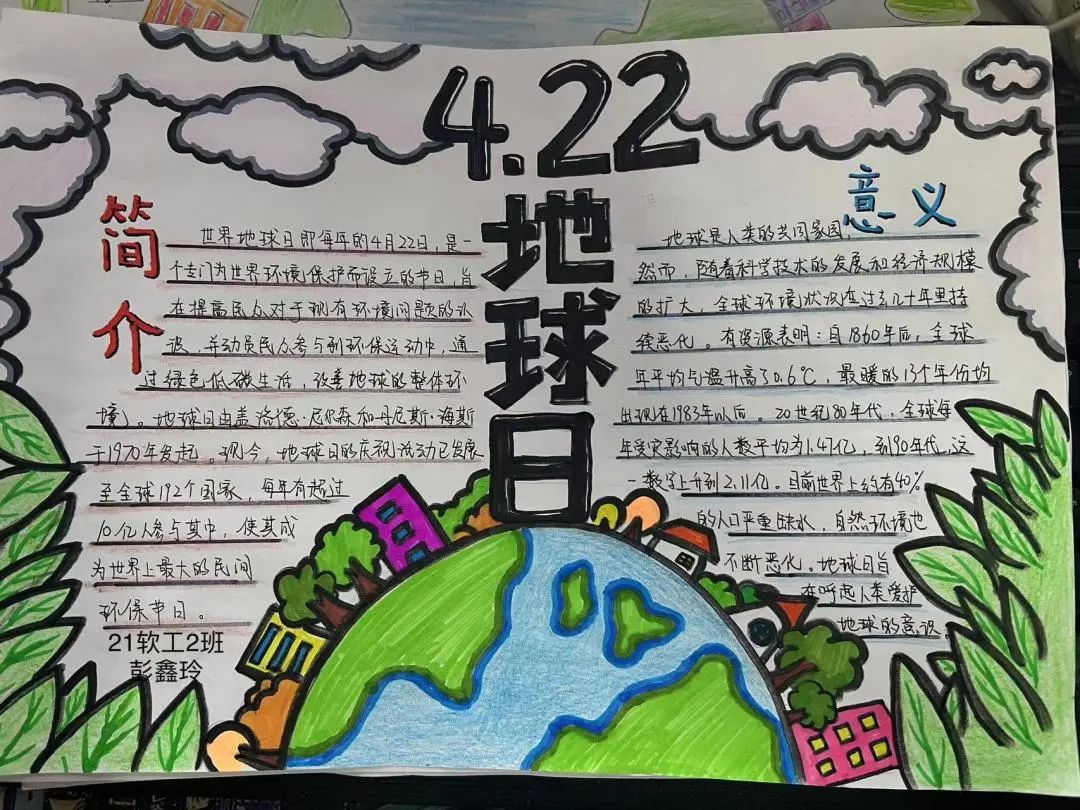 4.22
地球日
简介
世界地球日即每年的4月22日,是一
个专门为世界环境保护而设立的节日,旨
在提高民众对于现有环境问题的认
识,并动员民众参与到环保运动中,通
过绿色低碳生活,改善地球的整体环
境)。地球日由盖洛德·尼尔森和丹尼斯·海斯
于1970年发起。现今,地球日的庆祝活动已发展
至全球192个国家,每年有超过
10亿人参与其中,使其成
为世界上最大的民间
环保节日。
21软工2班
彭鑫玲
意义
地球是人类的共同家园,
然而,随着科学技术的发展和经济规模
的扩大,全球环境状况在过去几十年里持
续恶化。有资源表明:自1860年后,全球
年平均气温升高了0.6℃,最暖的13个年份均
出现在1983年以后。20世纪80年代,全球每
年受灾影响的人数平均为1.47亿,到90年代,这
一数字上升到2.11亿。目前世界上约有40%
的人口严重缺水,自然环境也
不断恶化。地球日旨
在呼起人类爱护
地球的意识。